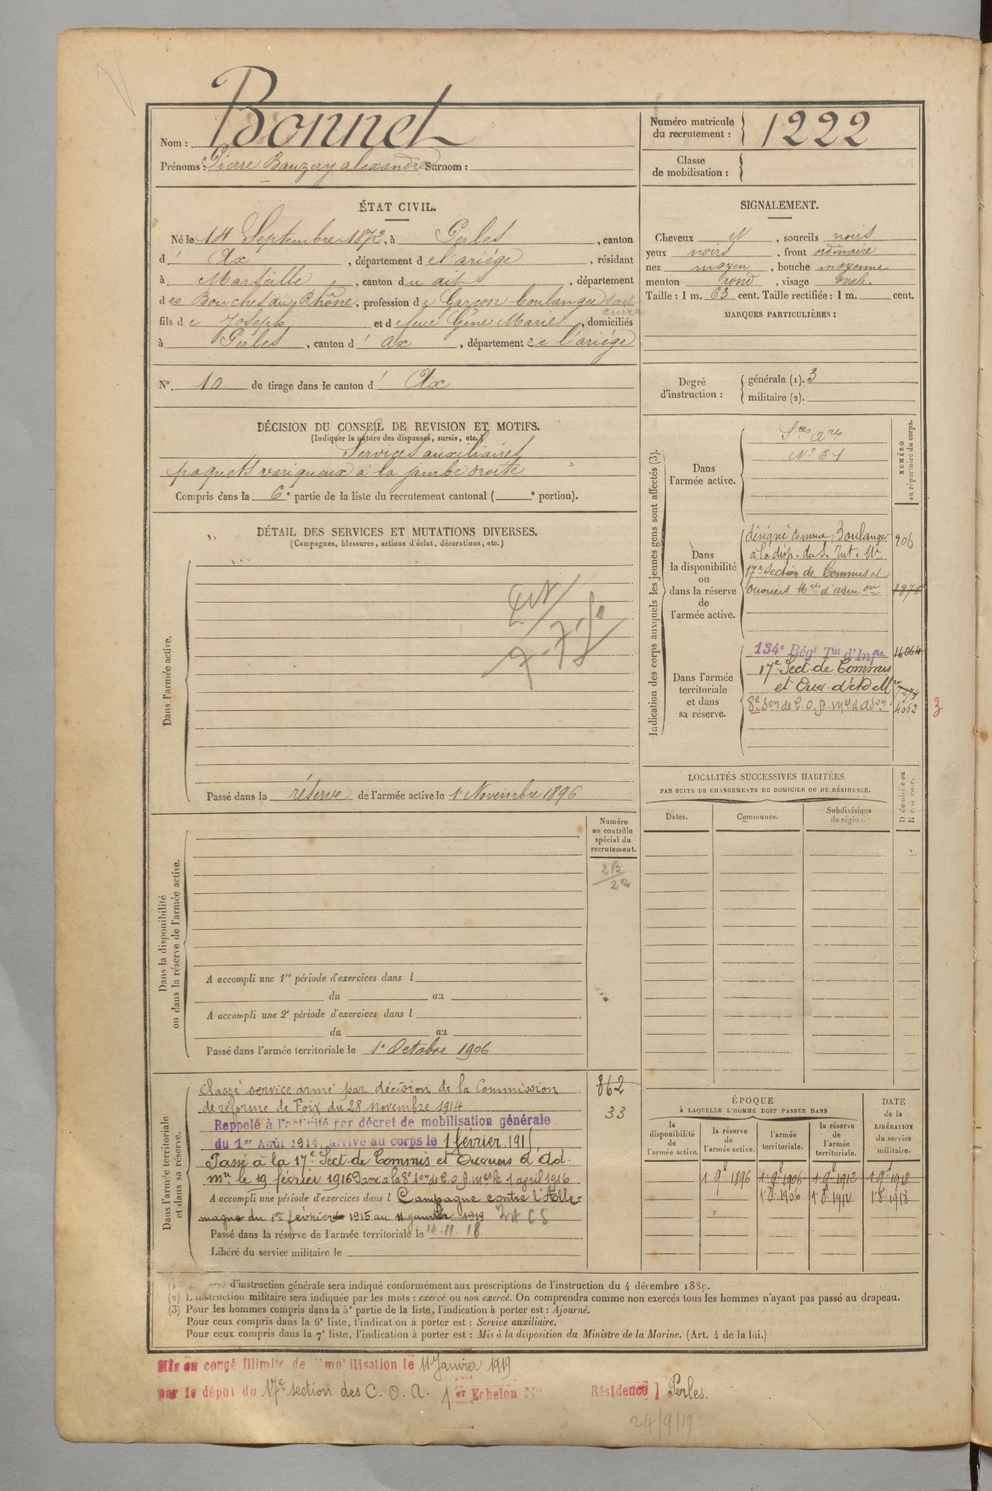 Nom : Bonnet
Prénoms : Pierre Alexandre Surnom :
Numéro matricule du recrutement : 1222
Classe de mobilisation :
ÉTAT CIVIL.
Né le 14 Septembre 1872, à Perles, canton
d' Ax, département de l'ariége, résidant
à Marseille, canton du dit, département
des Bouches du Rhône, profession de Garçon boulanger
fils de Joseph et de feue Gène Marie, domiciliés
à Perles, canton d' Ax, département de l'ariége
N°. 10 de tirage dans le canton d' Ax
DÉCISION DU CONSEIL DE REVISION ET MOTIFS.
(Indiquer la nature des dispenses, sursis, etc.)
Services auxiliaires
paquets variqueux à la jambe droite
Compris dans la 6e partie de la liste du recrutement cantonal ( e portion).
SIGNALEMENT.
Cheveux N, sourcils noirs
yeux noirs, front ordinaire
nez moyen, bouche moyenne
menton rond, visage ovale
Taille : 1 m. 63 cent. Taille rectifiée : 1 m. cent.
MARQUES PARTICULIÈRES :
Degré d'instruction : générale (1). 3
militaire (2).
DÉTAIL DES SERVICES ET MUTATIONS DIVERSES.
(Campagnes, blessures, actions d'éclat, décorations, etc.)
Dans l'armée active.
Passé dans la réserve de l'armée active le 1 Novembre 1896
Indication des corps auxquels les jeunes gens sont affectés (3).
NUMÉRO au répertoire du corps.
Dans l'armée active.
N° 61
Dans la disponibilité ou dans la réserve de l'armée active.
désigné comme Boulanger 906
à la disp. du S. Int. Mre
17e Section de Commis et
Ouvriers Mres d'adm on
Dans l'armée territoriale et dans sa réserve.
134e Régt Tal d'Infie
17e Sect de Commis
et Ouvr. d'Ad M
3
LOCALITÉS SUCCESSIVES HABITÉES
PAR SUITE DE CHANGEMENTS DE DOMICILE OU DE RÉSIDENCE.
Dates. Communes. Subdivisions de région. Domicile ou Résidence.
Numéro au contrôle spécial du recrutement.
Dans la disponibilité ou dans la réserve de l'armée active.
A accompli une 1re période d'exercices dans l
du au
A accompli une 2e période d'exercices dans l
du au
Passé dans l'armée territoriale le 1er Octobre 1906
Dans l'armée territoriale et dans sa réserve.
Classé service armé par décision de la Commission 862
de réforme de Foix du 28 novembre 1914 33
Rappelé à l'activité par décret de mobilisation générale
du 1er Août 1914. arrivé au corps le 1 février 191
Passé à la 17e Sect de Commis et Ouvriers d'Ad.
Mre le 19 février 1916
A accompli une période d'exercices dans l Campagne contre l'Alle-
magne du 1er février 1915 au 11 janvier 1919
Passé dans la réserve de l'armée territoriale le
Libéré du service militaire le
ÉPOQUE
À LAQUELLE L'HOMME DOIT PASSER DANS
DATE de la LIBÉRATION du service militaire.
la disponibilité de l'armée active. la réserve de l'armée active. l'armée territoriale. la réserve de l'armée territoriale.
1 9e 1896 1 9e 1906 1 9e 1912 1 9e 1918
1 8 1906 1 8 1912 1 8 1918
d'instruction générale sera indiqué conformément aux prescriptions de l'instruction du 4 décembre 1889.
(2) L'instruction militaire sera indiquée par les mots : exercé ou non exercé. On comprendra comme non exercés tous les hommes n'ayant pas passé au drapeau.
(3) Pour les hommes compris dans la 5e partie de la liste, l'indication à porter est : Ajourné.
Pour ceux compris dans la 6e liste, l'indication à porter est : Service auxiliaire.
Pour ceux compris dans la 7e liste, l'indication à porter est : Mis à la disposition du Ministre de la Marine. (Art. 4 de la loi.)
Mis en congé illimité de démobilisation le 11 Janvier 1919
par le dépôt du 17e section des C. O. A. 1er Echelon N° Résidence Perles.
24/9/19